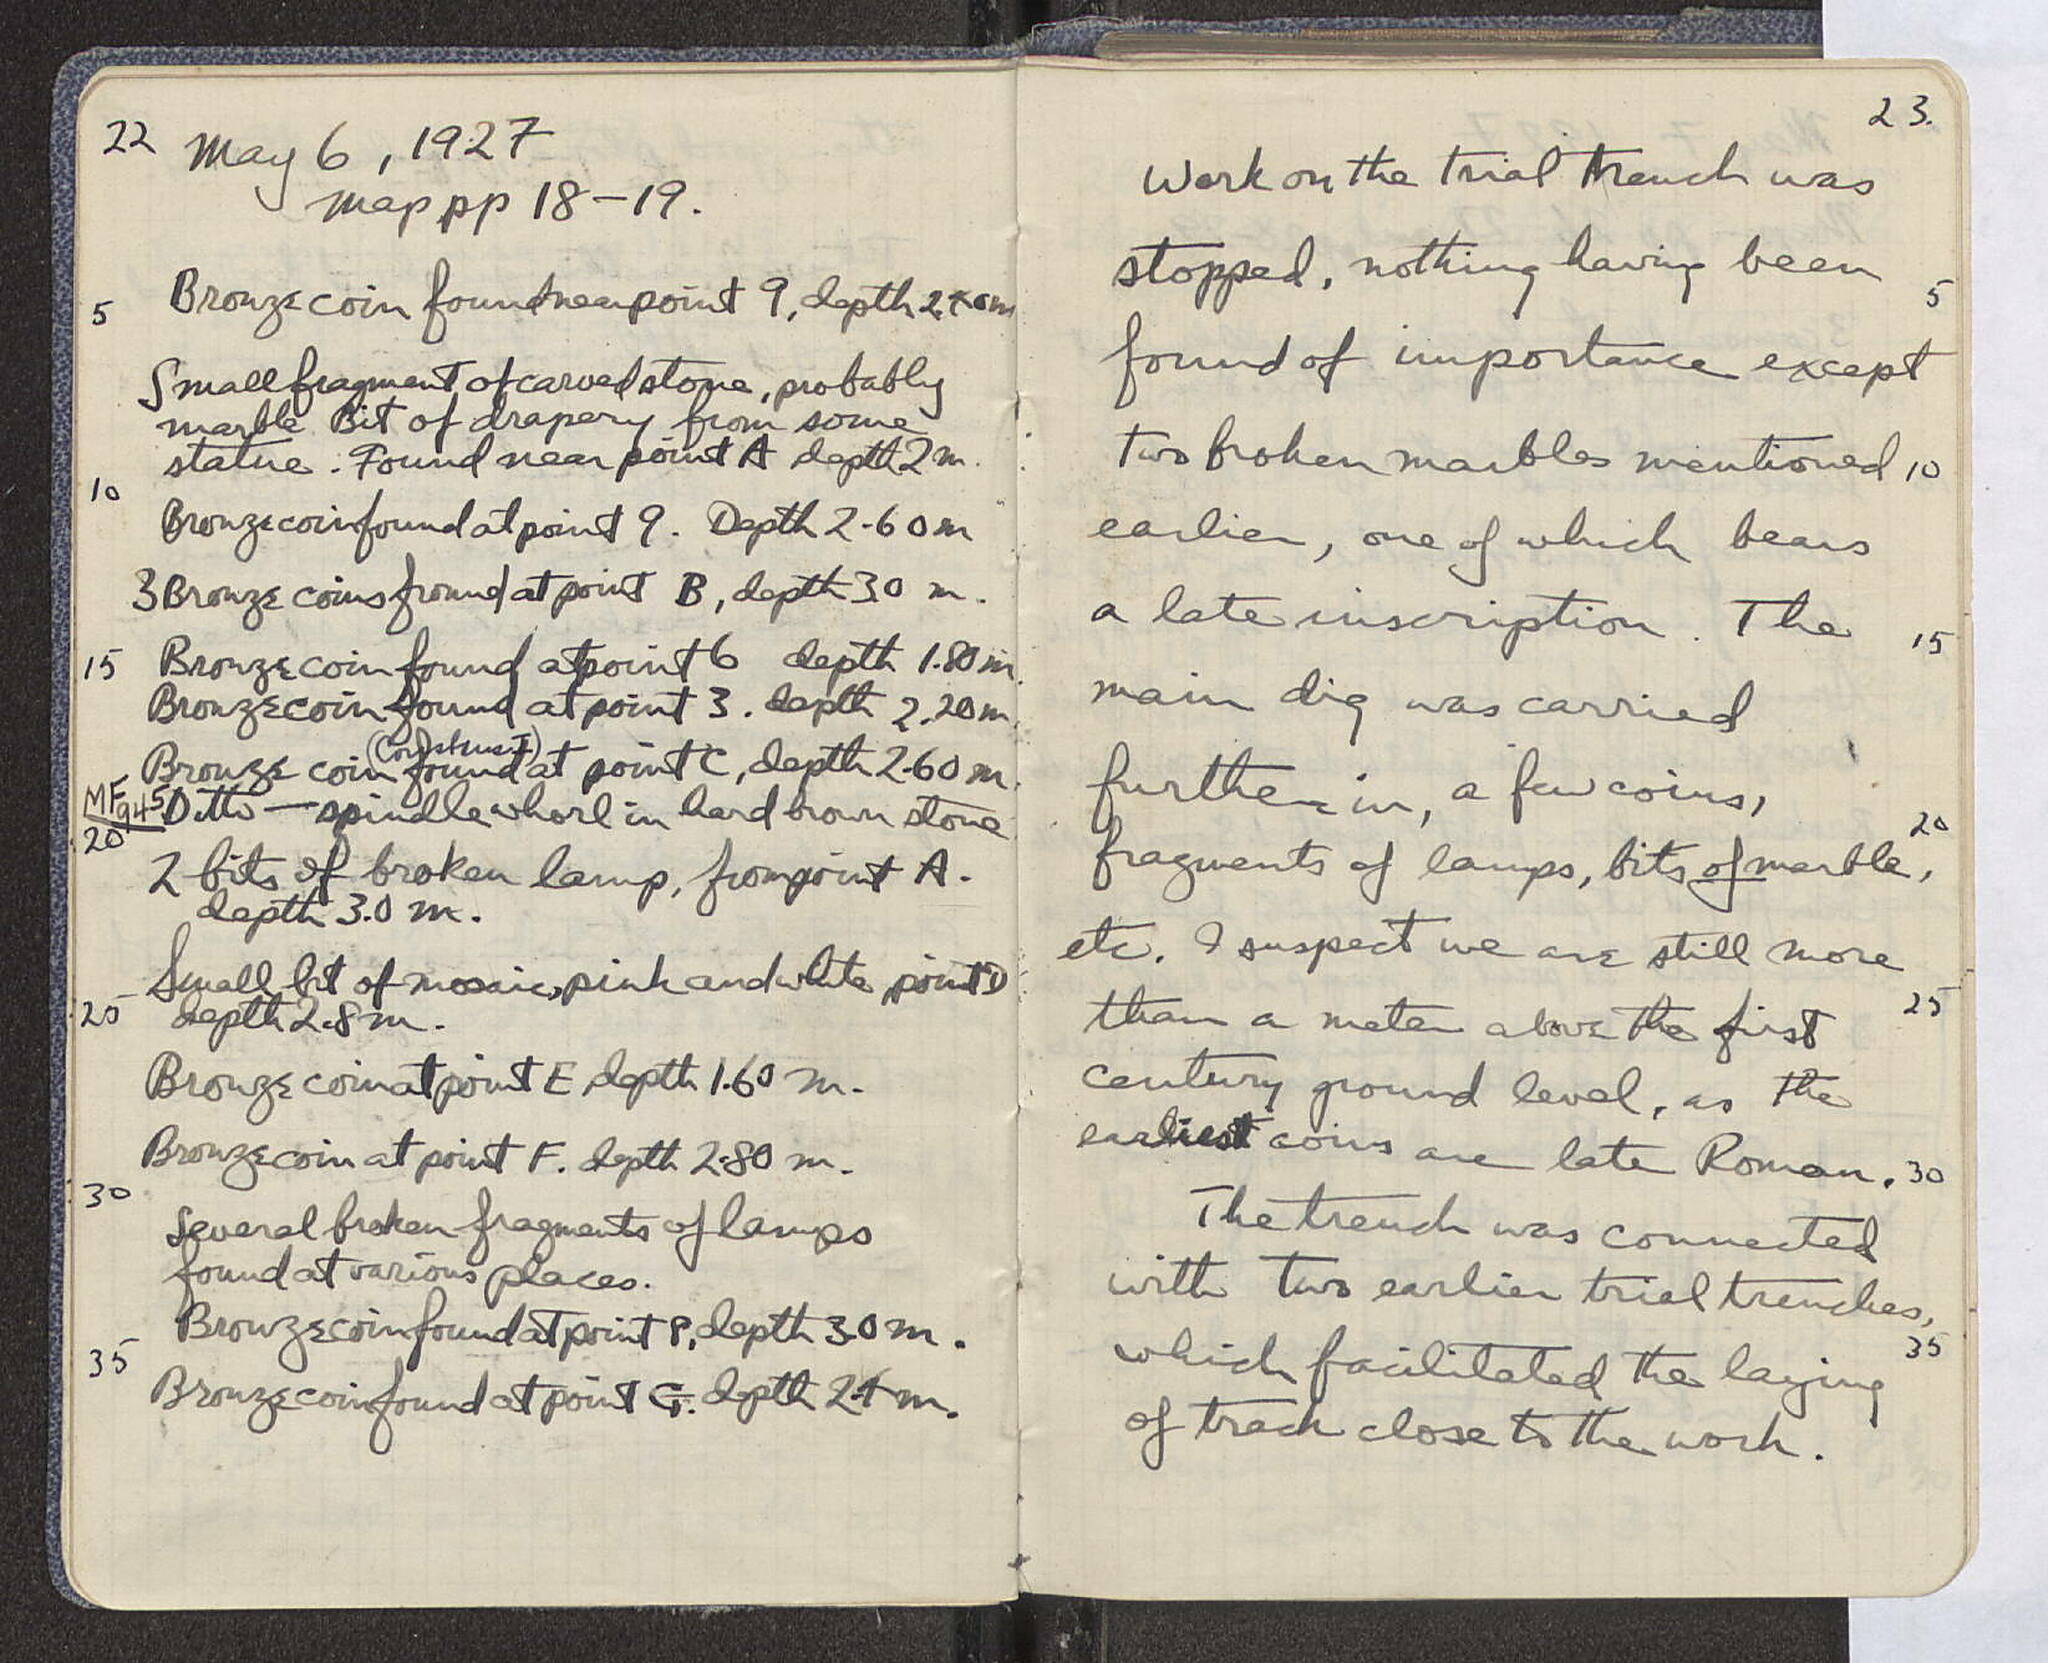 22 May 6, 1927
map pp 18-19.
5 Bronze coin found near point 9, depth 2.40m
Small fragment of carved stone, probably
marble Bit of drapery from some
statue. Found near point A depth 2m.
10
Bronze coin found at point 9. Depth 2.60m
3 Bronze coins found at point B, depth 3.0 m.
15 Bronze coin found at point 6 depth 1.80m.
Bronze coin found at point 3. depth 2.20m.
Bronze coin found at point C, depth 2.60 m.
MF 945 Ditto — spindle whorl in hard brown stone
20
2 bits of broken lamp, from point A.
depth 3.0 m.
Small bit of mosaic, pink and white, point D
25 depth 2.8m.
Bronze coin at point E depth 1.60 m.
Bronze coin at point F. depth 2.80 m.
30
Several broken fragments of lamps
found at various places.
Bronze coin found at point 8, depth 3.0 m.
35
Bronze coin found at point G. depth 2.4 m.
23.
Work on the trial trench was
stopped, nothing having been 5
found of importance except
two broken marbles mentioned 10
earlier, one of which bears
a late inscription. The 15
main dig was carried
further in, a few coins,
20
fragments of lamps, bits of marble,
etc. I suspect we are still more
than a meter above the first 25
century ground level, as the
earliest coins are late Roman. 30
The trench was connected
with two earlier trial trenches,
which facilitated the laying 35
of track close to the work.